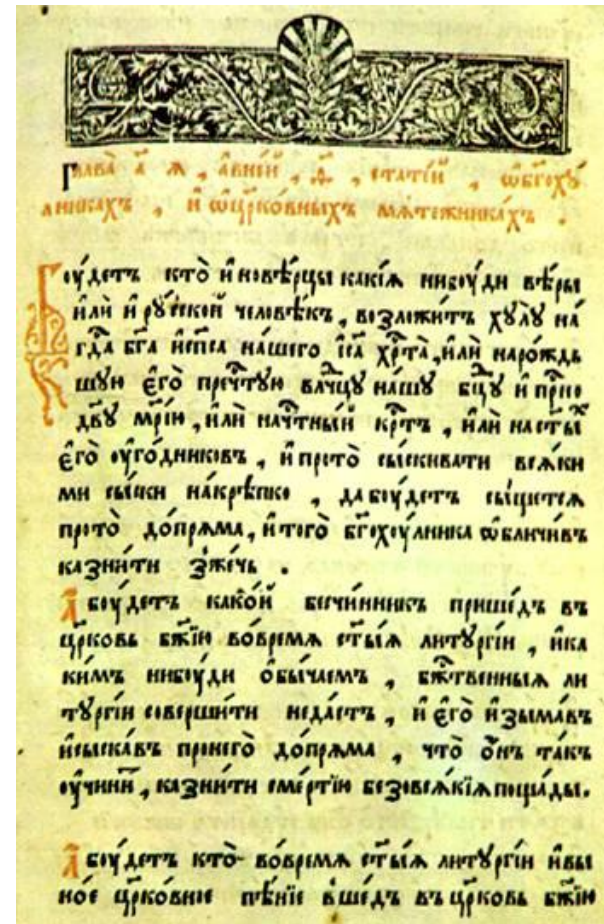 Глава̀ а҃ я , а҆вне́й , д҃ , статі́й , ѡ҆бг҃охꙋ́
лникахъ , и҆ ѡ҆цр҃ко́вныхъ мѧте́жникахъ .
Бꙋ́детъ кто̀ и҆новѣ́рцы какі́ѧ нибꙋ́ди вѣ́ры
и҆лѝ и҆ рꙋ́сской человѣ́къ , возложи́тъ хꙋлꙋ̀ на́
гдⷭ҇а бг҃а и҆сп҃са на́шего і҆са хрⷭ҇та̀ , и҆лѝ наро́ждь
шꙋю є҆го̀ пречⷭ҇тꙋю влⷣчцꙋ на́шꙋ бцⷣꙋ и҆ прⷭ҇но
дв҃ꙋ мр҃і́ю , и҆лѝ начⷭ҇тны́й крⷭ҇тъ , и҆лѝ наст҃ы́хъ
є҆го̀ ᲂу҆го́дниковъ , и҆ прото̀ сы́скивати всѧ́ки
ми сы́ски на́крѣпко , да бꙋ́детъ сы́щетсѧ
прото̀ до́прѧма , и҆того̀ бг҃охꙋ́лника ѡ҆бличи́въ
казни́ти зже́чь .
А҆ бꙋ́детъ како́й безчи́нникъ прише́дъ въ
цр҃ковь бж҃ію во́времѧ ст҃ы́ѧ литꙋргі́и , и҆ка
ки́мъ нибꙋ́ди ѻ҆бы́чаемъ , бжⷭ҇твенныѧ ли
тꙋргі́и соверши́ти неда́стъ , и҆ є҆го̀ и҆зыма́въ
и҆сыска́въ пронего̀ до́прѧма , что̀ ѻ҆́нъ та́къ
ᲂу҆чини́тъ , казни́ти сме́ртію безовсѧ́кіѧ поща́ды.
А҆ бꙋ́детъ кто̀ во́времѧ ст҃ы́ѧ литꙋргі́и и҆вы
но́е цр҃ко́вное пѣ́ніе вше́дъ въ цр҃ковь бж҃ію